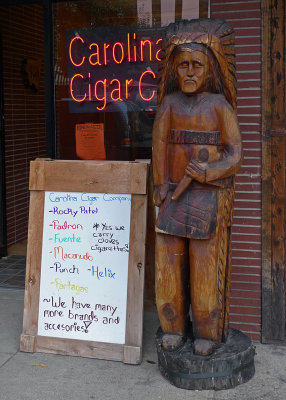 Carolina
Cigar C
Carolina Cigar Company
~Rocky Patel
~Padron
~Fuente
~Macanudo
~Punch ~Helix
~Partagas
*Yes we
carry
cloves
cigarettes!
~We have many
more brands and
accesories!